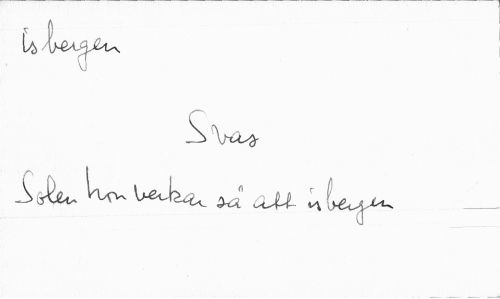 isbergen
Svas
Solen hon verkar så att isbergen